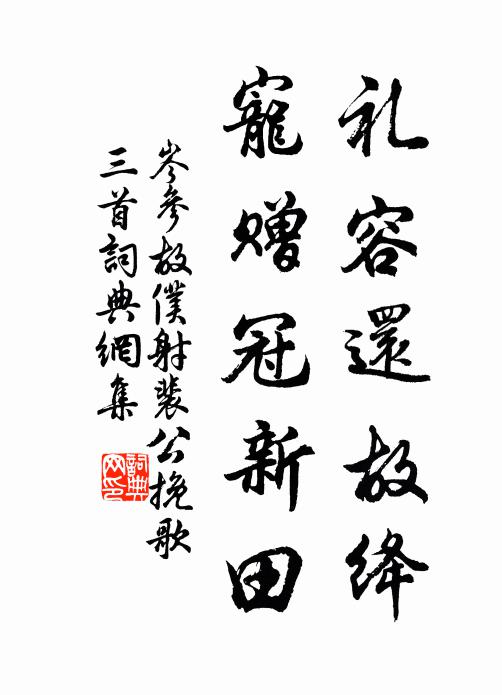 礼容還故绛
寵赠冠新田
岑參故僕射裴公挽歌
三首詞典網集
詞典網印